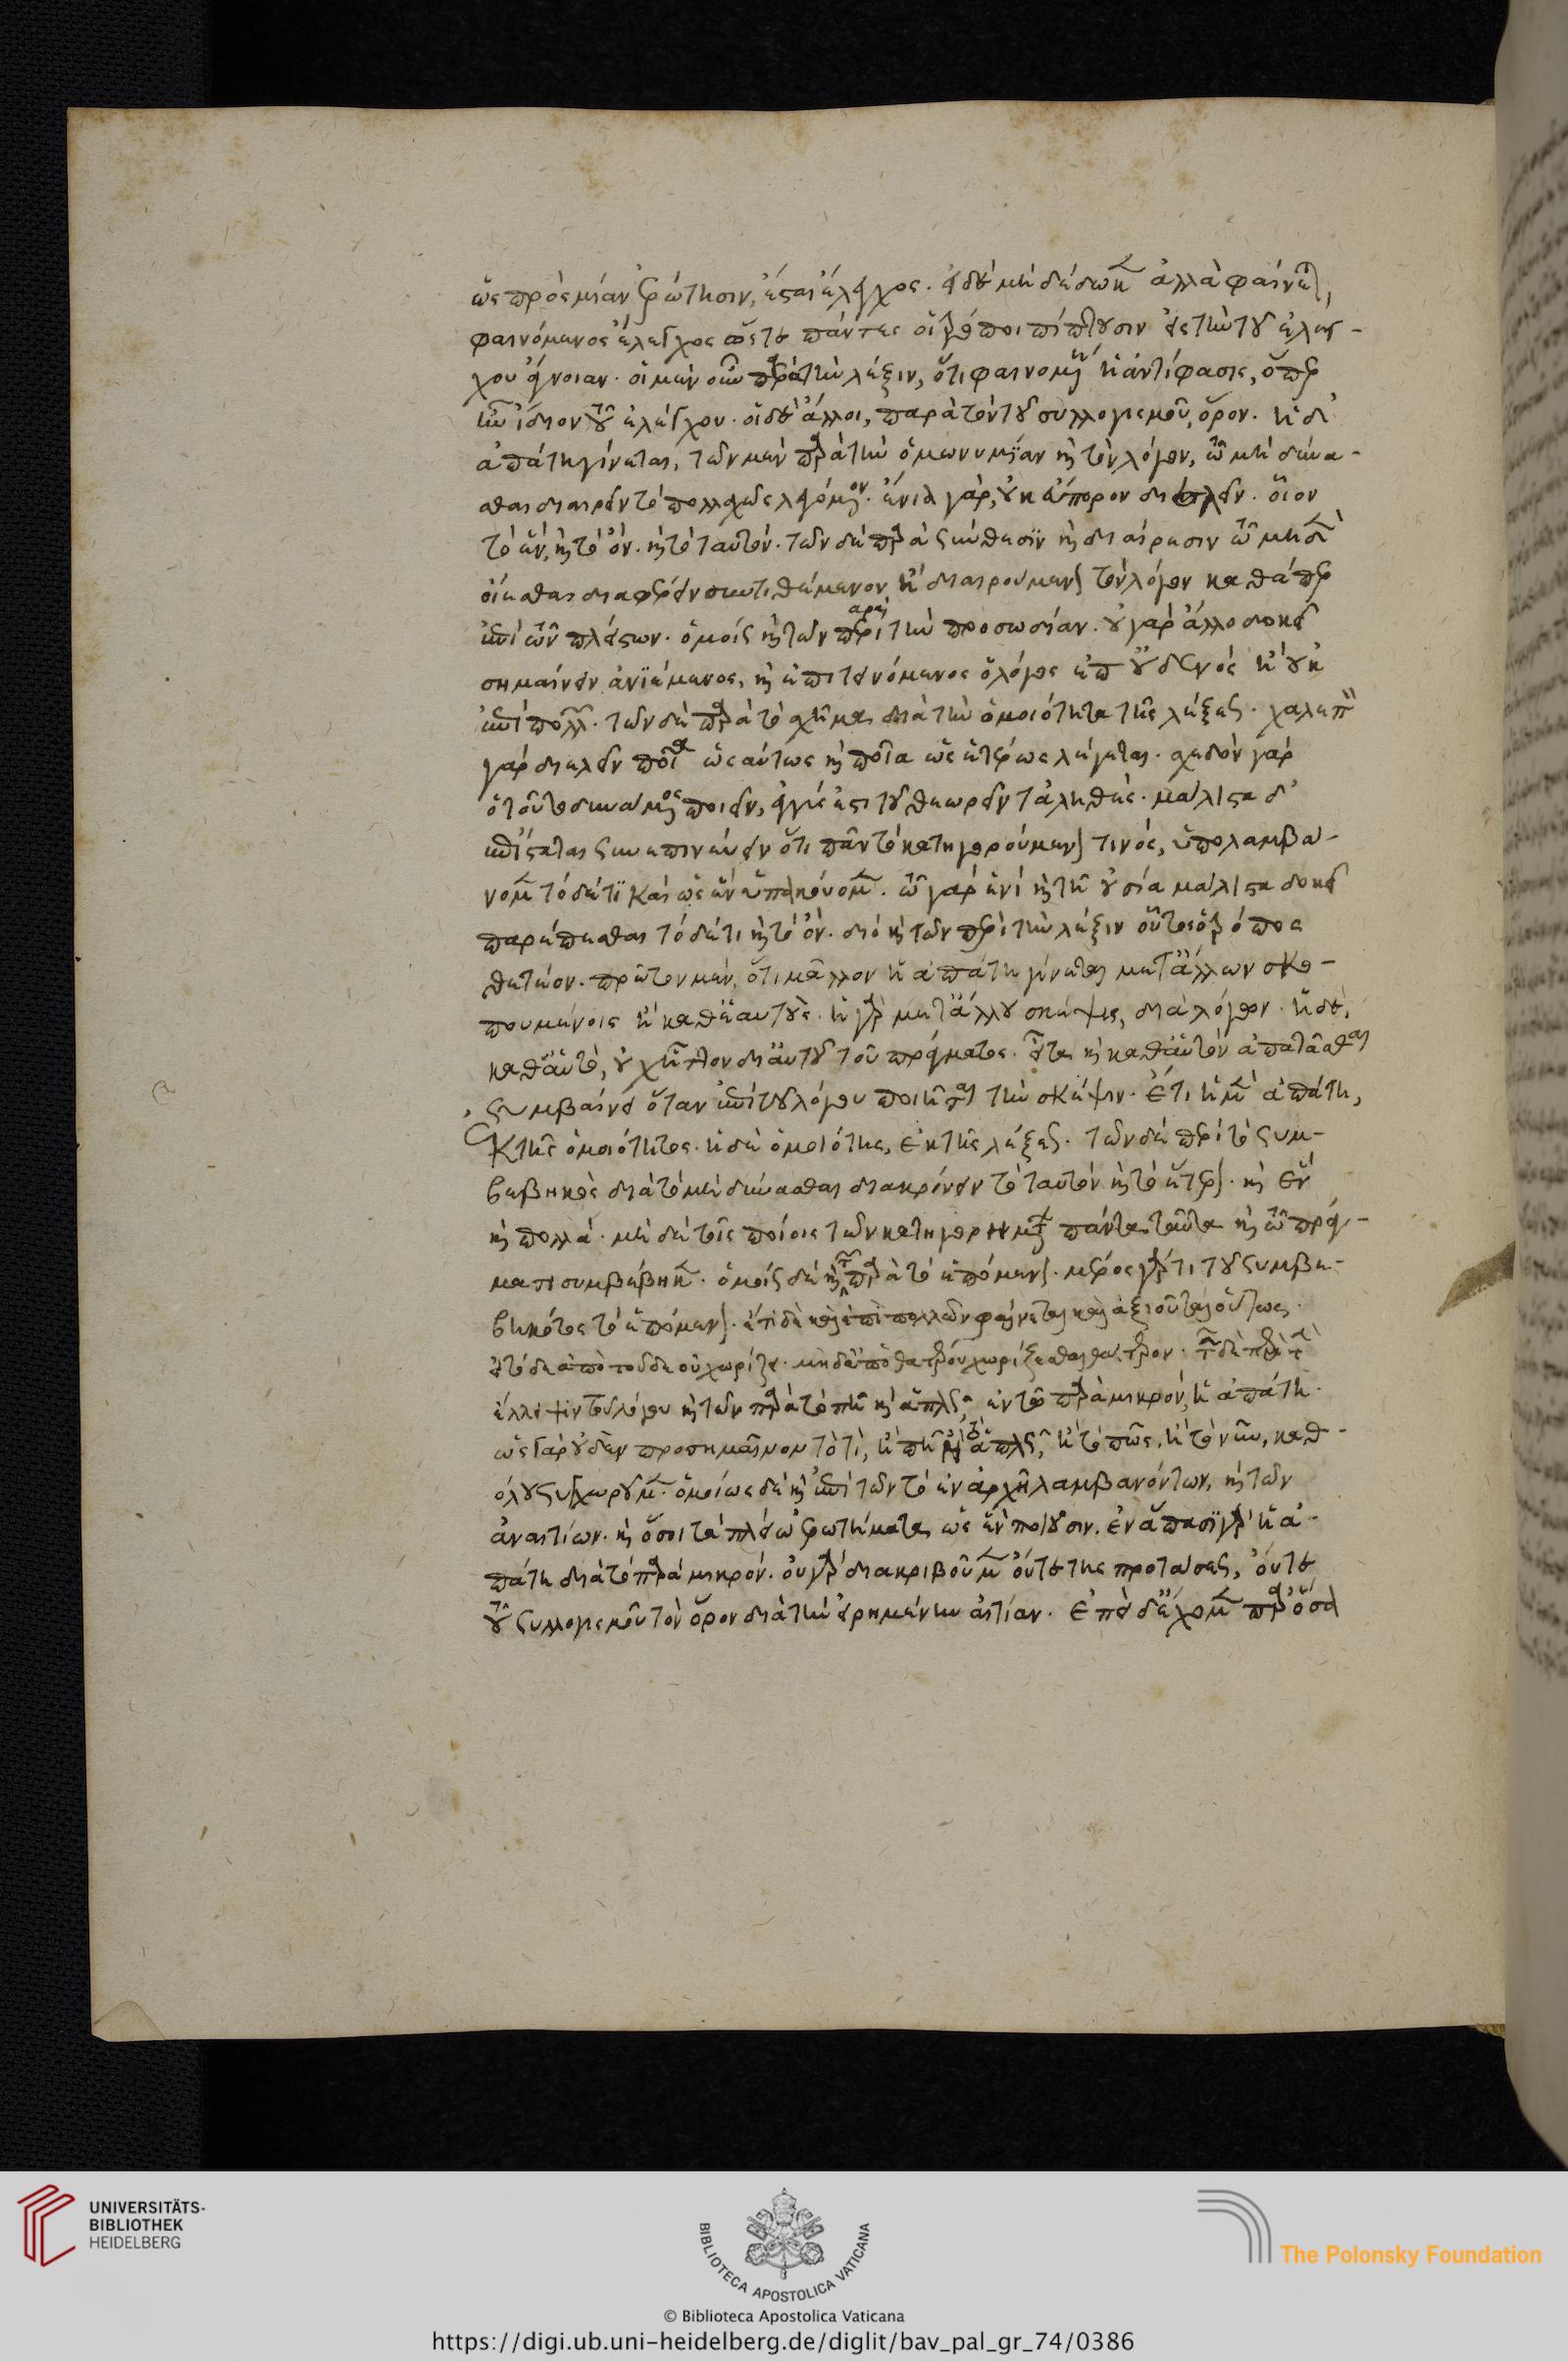 ὡς πρὸς μίαν ἐρώτησιν, ἔσται ἔλεγχος. εἰ δὲ μὴ δέδωκεν ἀλλὰ φαίνεται,
φαινόμενος ἔλεγχος ὥστε πάντες οἱ τρόποι πίπτουσιν εἰς τὴν τοῦ ἐλέγ-
χου ἄγνοιαν. οἱ μὲν οὖν παρὰ τὴν λέξιν, ὅτι φαινομένη ἡ ἀντίφασις, ὅπερ
ἦν ἴδιον τοῦ ἐλέγχου. οἱ δὲ ἄλλοι, παρὰ τὸν τοῦ συλλογισμοῦ, ὅρον. ἡ δ'
ἀπάτη γίνεται, τῶν μὲν παρὰ τὴν ὁμωνυμίαν καὶ τὸν λόγον, τῶ μὴ δύνα-
σθαι διαιρεῖν τὸ πολλαχῶς λεγόμενον. ἔνια γὰρ, οὐκ εὔπορον διελεῖν. οἷον
τὸ ἕν, καὶ τὸ ὄν. καὶ τὸ ταὐτόν. τῶν δὲ παρὰ σύνθεσιν καὶ διαίρεσιν τῶ μηδὲν
οἴεσθαι διαφέρειν συντιθέμενον ἢ διαιρούμενον τὸν λόγον καθάπερ
ἐπὶ τῶν πλείστων. ὁμοίως καὶ τῶν παρὰ τὴν προσωδίαν. οὐ γὰρ ἄλλο δοκεῖ
σημαίνειν ἀνιέμενος, καὶ ἐπιτεινόμενος ὁ λόγος ἐπ' οὐδενός ἢ οὐκ
ἐπὶ πολλῶν. τῶν δὲ παρὰ τὸ σχῆμα διὰ τὴν ὁμοιότητα τῆς λέξεως. χαλεπὸν
γὰρ διελεῖν ποῖα ὡσαύτως καὶ ποῖα ὡς ἑτέρως λέγεται. σχεδὸν γὰρ
ὁ τοῦτο δυνάμενος ποιεῖν, ἐγγύς ἐστι τοῦ θεωρεῖν τἀληθές. μάλιστα δ'
ἐπίσταται συνεπινεύειν ὅτι πᾶν τὸ κατηγορούμενόν τινός, ὑπολαμβά-
νομεν τόδέ τι καὶ ὡς ἓν ὑπακούομεν. τῶ γὰρ ἑνὶ καὶ τῆ οὐσία μάλιστα δοκεῖ
παρέπεσθαι τόδέ τι καὶ τὸ ὄν. διὸ καὶ τῶν περὶ τὴν λέξιν οὗτος ὁ τρόπος
θετέον. πρῶτον μὲν, ὅτι μᾶλλον ἡ ἀπάτη γίνεται μετ' ἄλλων σκο-
πουμένοις ἢ καθ' ἑαυτούς. ἡ γὰρ μετ' ἄλλου σκέψις, διὰ λόγων. ἡ δὲ,
καθ' αὑτὸ, οὐχ ἧττον δι' αὐτοῦ τοῦ πράγματος. εἶτα καὶ καθ' αὑτὸν ἀπατᾶσθαι
συμβαίνει ὅταν ἐπὶ τοῦ λόγου ποιῆται τὴν σκέψιν. ἔτι ἡ μὲν ἀπάτη,
ἐκ τῆς ὁμοιότητος. ἡ δὲ ὁμοιότης, ἐκ τῆς λέξεως. τῶν δὲ περὶ τὸ συμ-
βεβηκὸς διὰ τὸ μὴ δύνασθαι διακρίνειν τὸ ταὐτὸν καὶ τὸ ἕτερον. καὶ ἓν
καὶ πολλά. μὴ δὲ τοῖς ποίοις τῶν κατηγορημάτων πάντα ταῦτα καὶ τῶ πράγ-
ματι συμβέβηκεν. ὁμοίως δὲ καὶ τῶν παρὰ τὸ ἑπόμενον. μέρος γάρ τι τοῦ συμβε-
βηκότος τὸ ἑπόμενον. ἔτι δὲ καὶ ἐπὶ πολλῶν φαίνεται καὶ ἀξιοῦται οὕτως.
εἰ τόδε ἀπὸ τοῦδε οὐ χωρίζεται. μηδ' ἀπὸ θατέρου χωρίζεσθαι θάτερον. τῶν δὲ παρὰ τὴν
ἔλλειψιν τοῦ λόγου καὶ τῶν παρὰ τὸ πῆ καὶ ἁπλῶς, ἐν τῶ παρὰ μικρὸν, ἡ ἀπάτη.
ὡς γὰρ οὐδὲν προσημαῖνον τὸ τὶ, ἢ πῆ ἢ τὸ ἁπλῶς, ἢ τὸ πῶς, ἢ τὸ νῦν, καθ-
όλου συγχωροῦμεν. ὁμοίως δὲ καὶ ἐπὶ τῶν τὸ ἐν ἀρχῆ λαμβανόντων, καὶ τῶν
ἀναιτίων. καὶ ὅσοι τὰ πλείω ἐρωτήματα, ὡς ἓν ποιοῦσιν. ἐν ἅπασι γὰρ ἡ ἀ-
πάτη διὰ τὸ παρὰ μικρόν. οὐ γὰρ διακριβοῦμεν οὔτε τῆς προτάσεως, οὔτε
τοῦ συλλογισμοῦ τὸν ὅρον διὰ τὴν εἰρημένην αἰτίαν. ἐπεὶ δ' ἔχομεν παρ' ὅσα
UNIVERSITÄTS-
BIBLIOTHEK
HEIDELBERG
BIBLIOTECA APOSTOLICA VATICANA
The Polonsky Foundation
© Biblioteca Apostolica Vaticana
https://digi.ub.uni-heidelberg.de/diglit/bav_pal_gr_74/0386